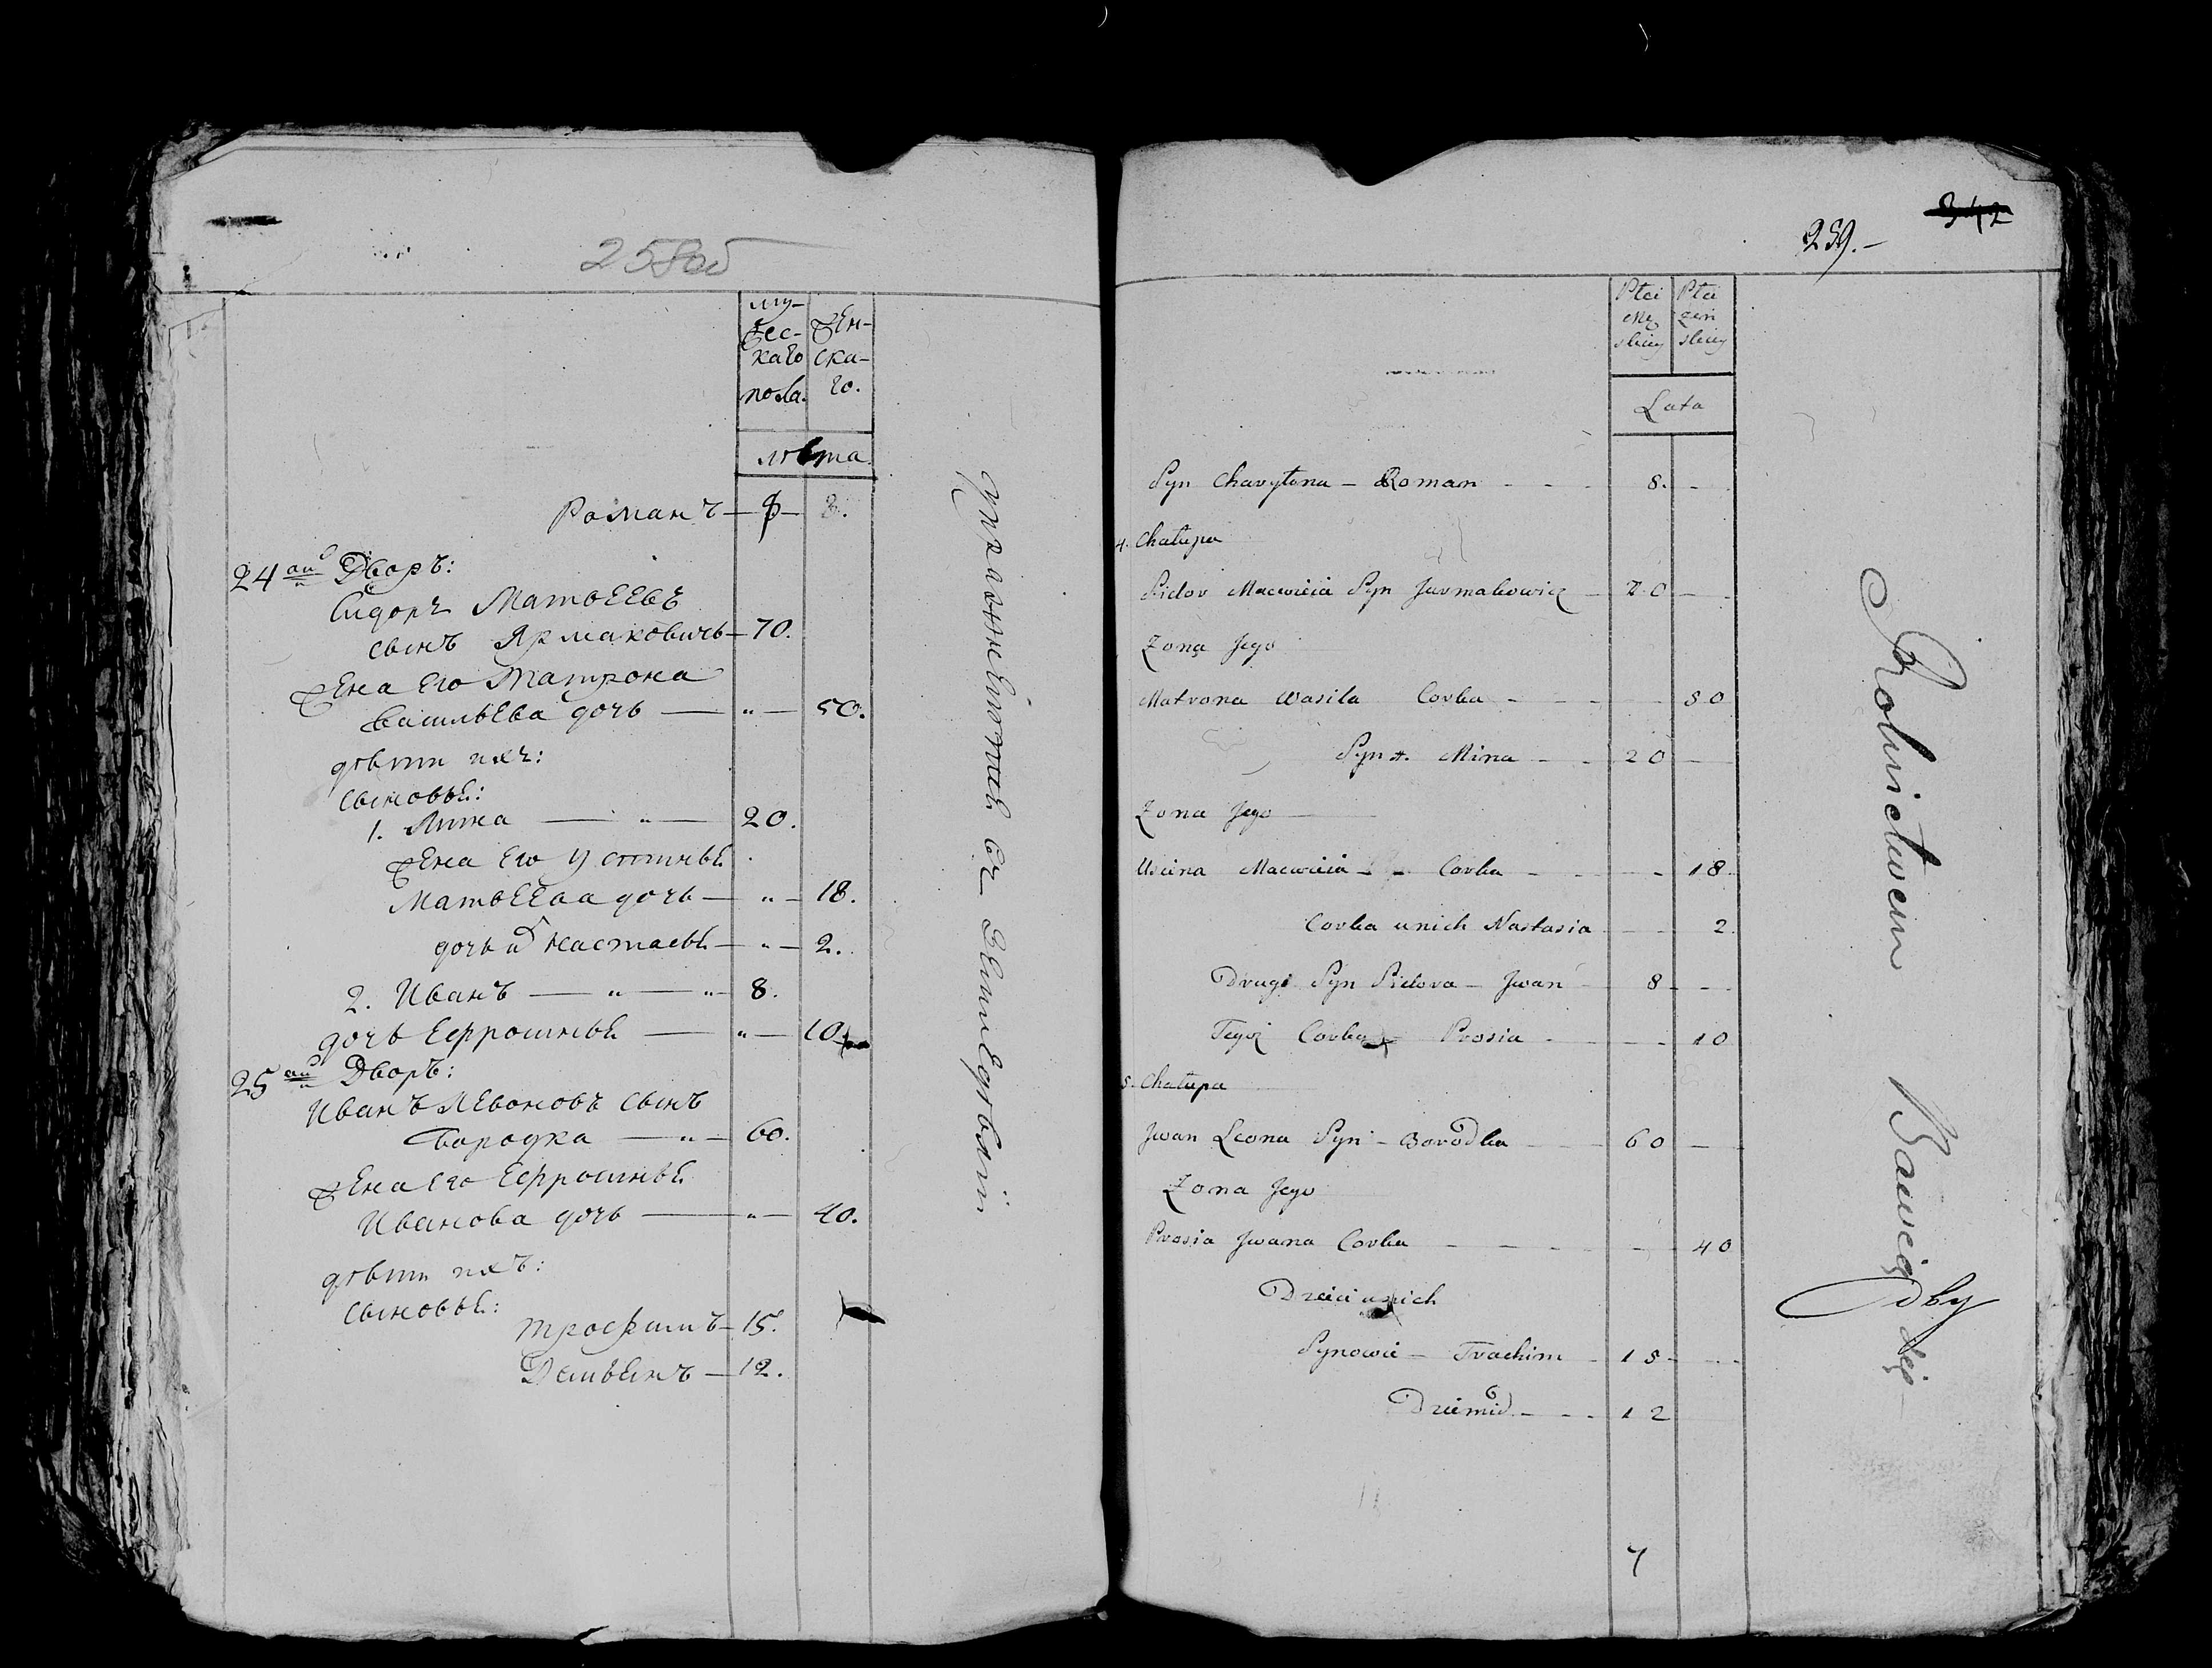 258об
му-
жес-
каго
пола.
жен-
ска-
го.
лѣта.
Романъ — 8 —
24 Дворъ:
Сидоръ Матвеевъ
сынъ Ярмаковичь — 70.
жена его Матрона
Васильева дочь — „ — 50.
дѣти ихъ:
сыновья:
1. Мина — „ — 20.
жена его Устинья
Матвеева дочь — „ — 18.
дочь их Настасья — „ — 2.
2. Иванъ — „ — „ 8.
дочь Ефросинья — „ — 10.
25 Дворъ:
Иванъ Левоновъ сынъ
Бородка — „ — 60.
жена его Ефросинья
Иванова дочь — „ — 40.
дѣти ихъ:
сыновья:
Трофимъ — 15.
Демьянъ — 12.
упражняются въ земледѣліи
342
259.-
Płci
Mę
skiey
Płci
żeń
skiey
Lata
Syn Charytona - Roman - - - 8. -
4. Chałupa
Sidor Macwieia Syn Jarmakowicz - 70 -
Zona Jego
Matrona Wasila Corka - - - - 50
Syn Mina - - 20 -
Zona Jego
Uscina Macwieia - Corka - - - - 18
Corka unich Nastasia - - 2.
Drugi Syn Sidora - Jwan - 8 - -
Tegoż Corka Prosia - - - 10
5. Chałupa
Jwan Leona Syn - Borodka - 60 -
Zona Jego
Prosia Jwana Corka - - - - 40
Dzieci unich
Synowie - Trachim - 15 - -
Dziemid - - - 12
7
Rolnictwem Bawią się